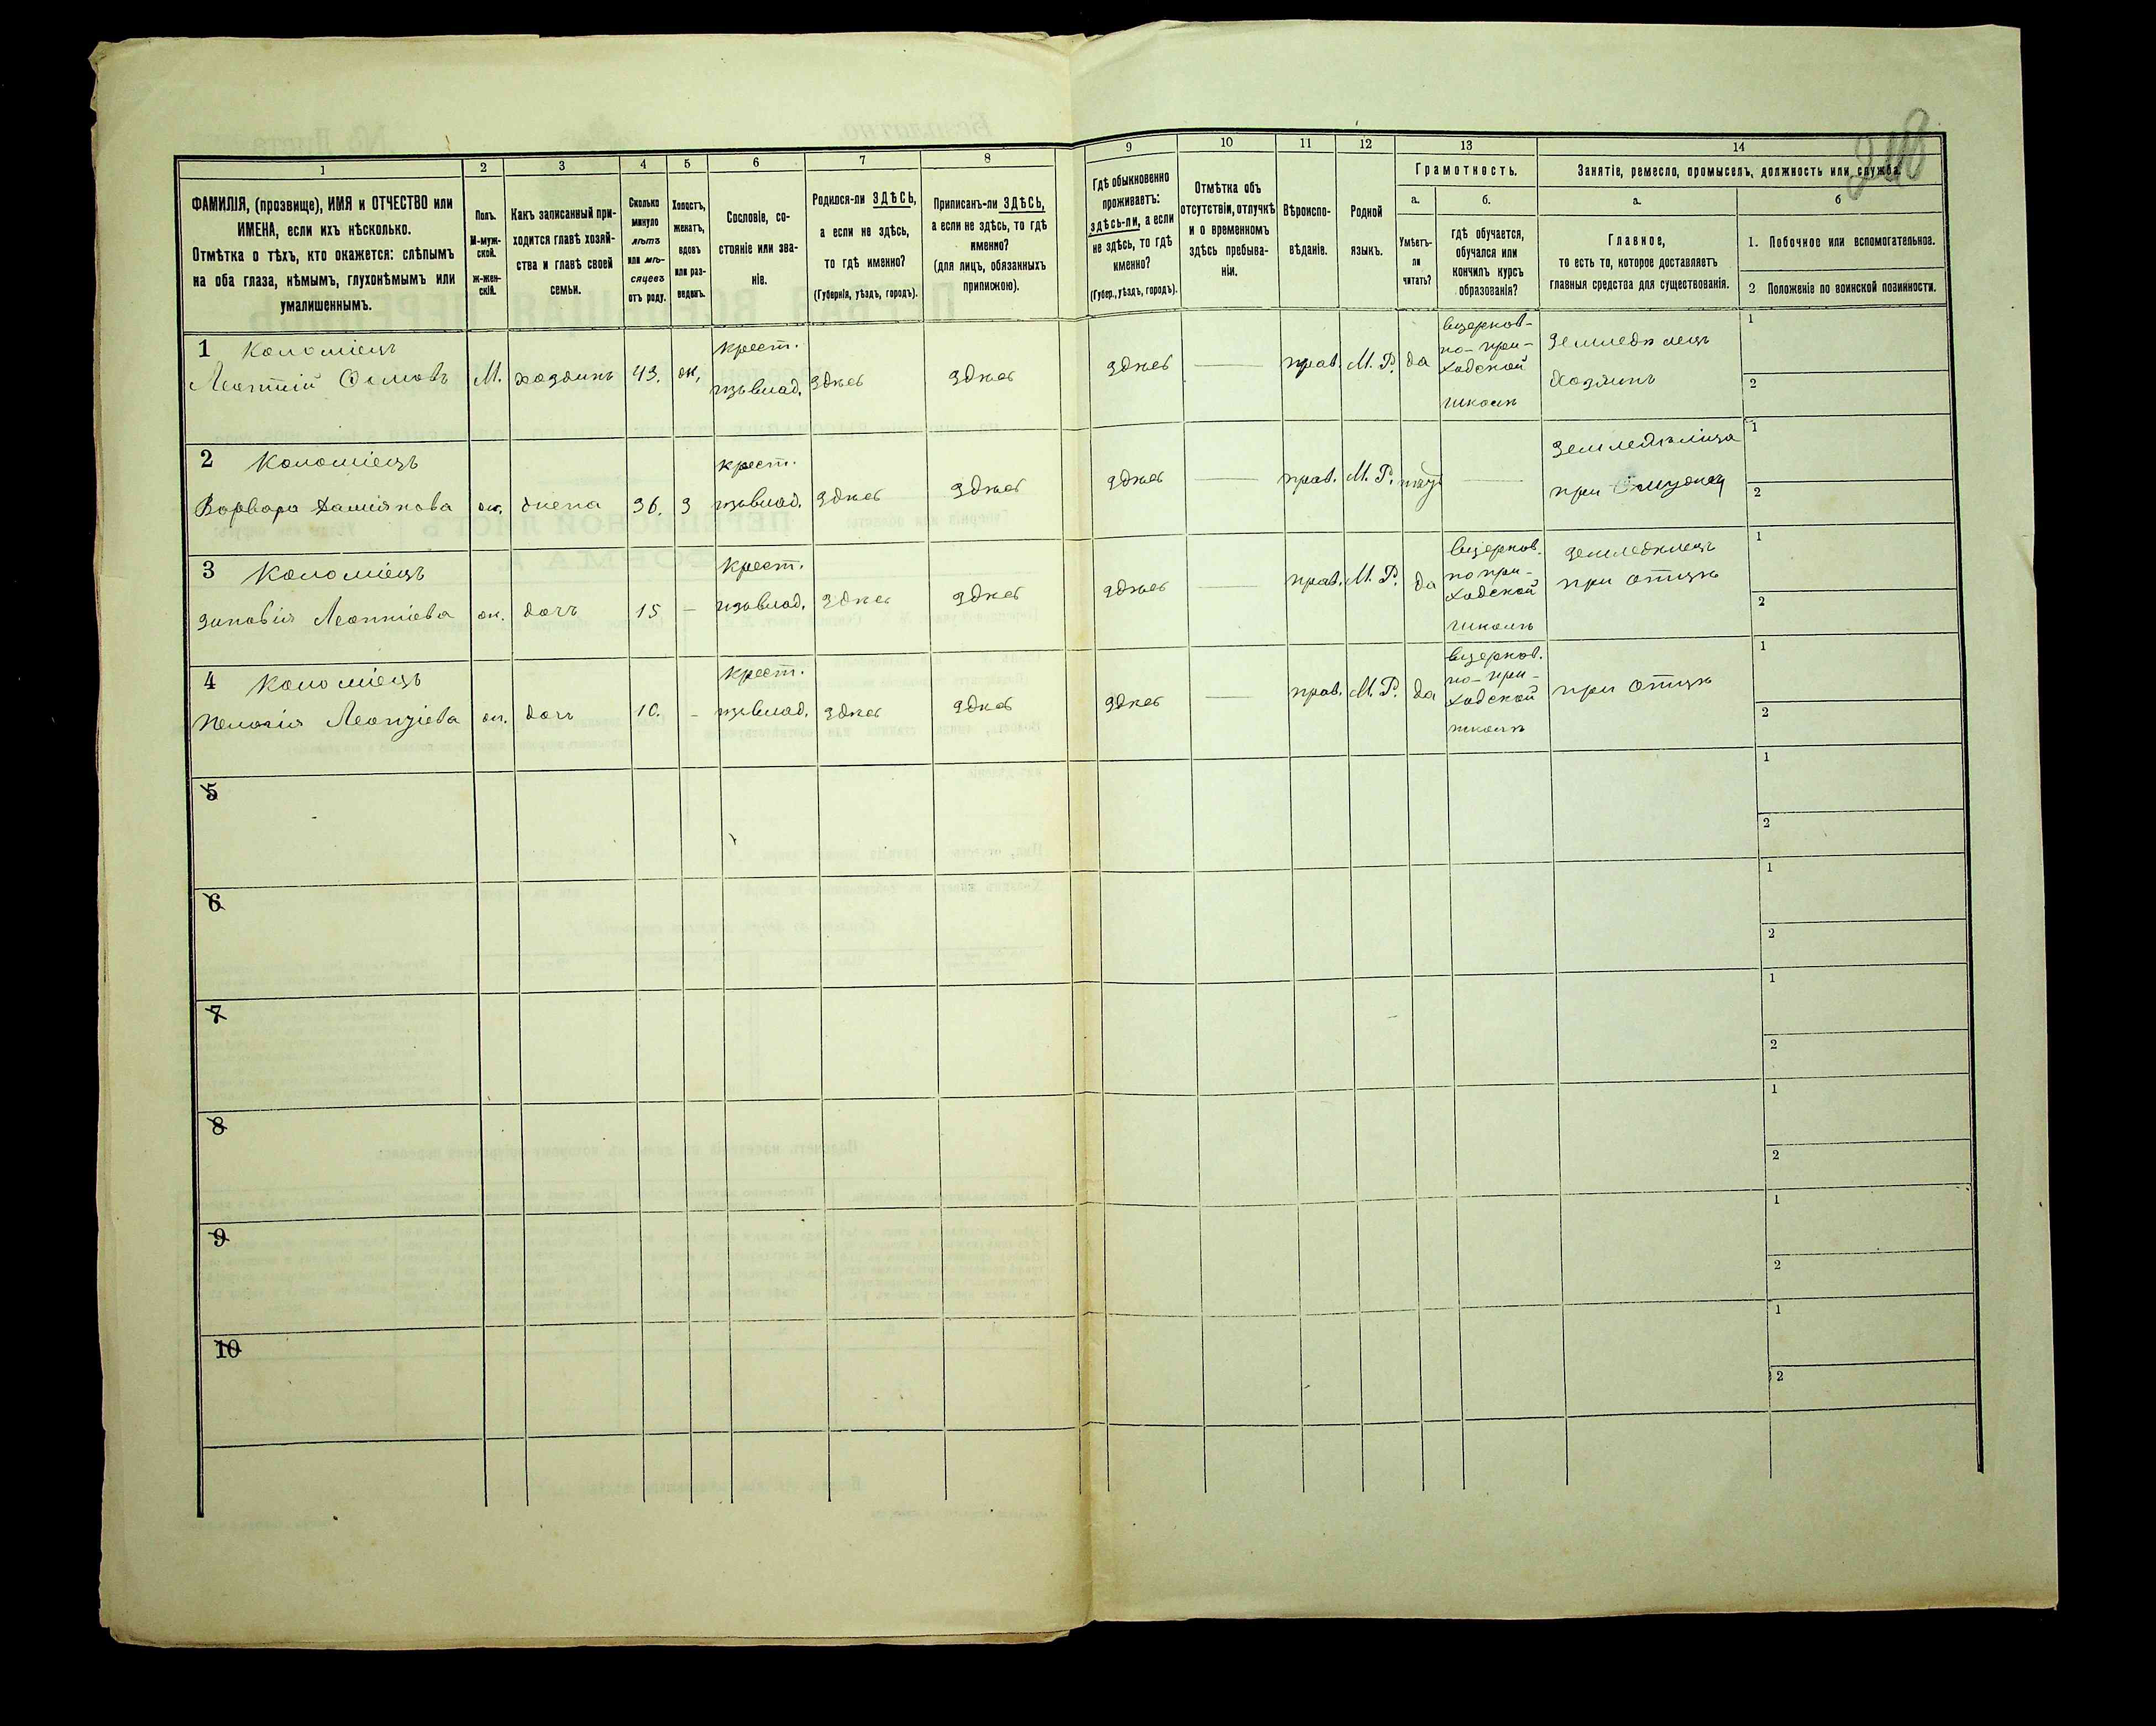 1 2 3 4 5 6 7 8 9 10 11 12 13 14
ФАМИЛІЯ, (прозвище), ИМЯ и ОТЧЕСТВО или
ИМЕНА, если ихъ нѣсколько.
Отмѣтка о тѣхъ, кто окажется: слѣпымъ
на оба глаза, нѣмымъ, глухонѣмымъ или
умалишеннымъ.
Полъ.
М-муж-
ской.
ж-жен-
скій.
Какъ записанный при-
ходится главѣ хозяй-
ства и главѣ своей
семьи.
Сколько
минуло
лѣтъ
или мѣ-
сяцевъ
отъ роду.
Холостъ,
женатъ,
вдовъ
или раз-
веденъ.
Сословіе, со-
стояніе или зва-
ніе.
Родился-ли ЗДѢСЬ,
а если не здѣсь,
то гдѣ именно?
(Губернія, уѣздъ, городъ).
Приписанъ-ли ЗДѢСЬ,
а если не здѣсь, то гдѣ
именно?
(для лицъ, обязанныхъ
припискою).
Гдѣ обыкновенно
проживаетъ:
здѣсь-ли, а если
не здѣсь, то гдѣ
именно?
(Губер., уѣздъ, городъ).
Отмѣтка объ
отсутствіи, отлучкѣ
и о временномъ
здѣсь пребыва-
ніи.
Вѣроиспо-
вѣданіе.
Родной
языкъ.
Грамотность.
а.
Умѣетъ-
ли
читать?
б.
гдѣ обучается,
обучался или
кончилъ курсъ
образованія?
Занятіе, ремесло, промыселъ, должность или служба.
а.
Главное,
то есть то, которое доставляетъ
главныя средства для существованія.
б
1. Побочное или вспомогательное.
2 Положеніе по воинской повинности.
1 Коломіецъ
М. хозяинъ 43. ж, крест. изъ влад. здѣсь здѣсь здѣсь — прав. М. Р. да
вцерков-
но-при-
ходской
школѣ
Земледѣлецъ
Хозяинъ
1
2
2 Коломіецъ
Варвара Даміянова ж. жена 36. З крест. изъ влад. здѣсь здѣсь здѣсь — прав. М. Р. —
Земледѣлица
при
1
2
3 Коломіецъ
Зиновія Леонтіева ж. дочь 15 — крест. изъ влад. здѣсь здѣсь здѣсь — прав. М. Р. да
вцерков.
но при-
ходской
школѣ
земледѣлецъ
при отцѣ
1
2
4 Коломіецъ
Пелагія Леонтіева ж. дочь 10. — крест. изъ влад. здѣсь здѣсь здѣсь — прав. М. Р. да
вцерков.
но-при-
ходской
школѣ
при отцѣ
1
2
5
1
2
6
1
2
7
1
2
8
1
2
9
1
2
10
1
2